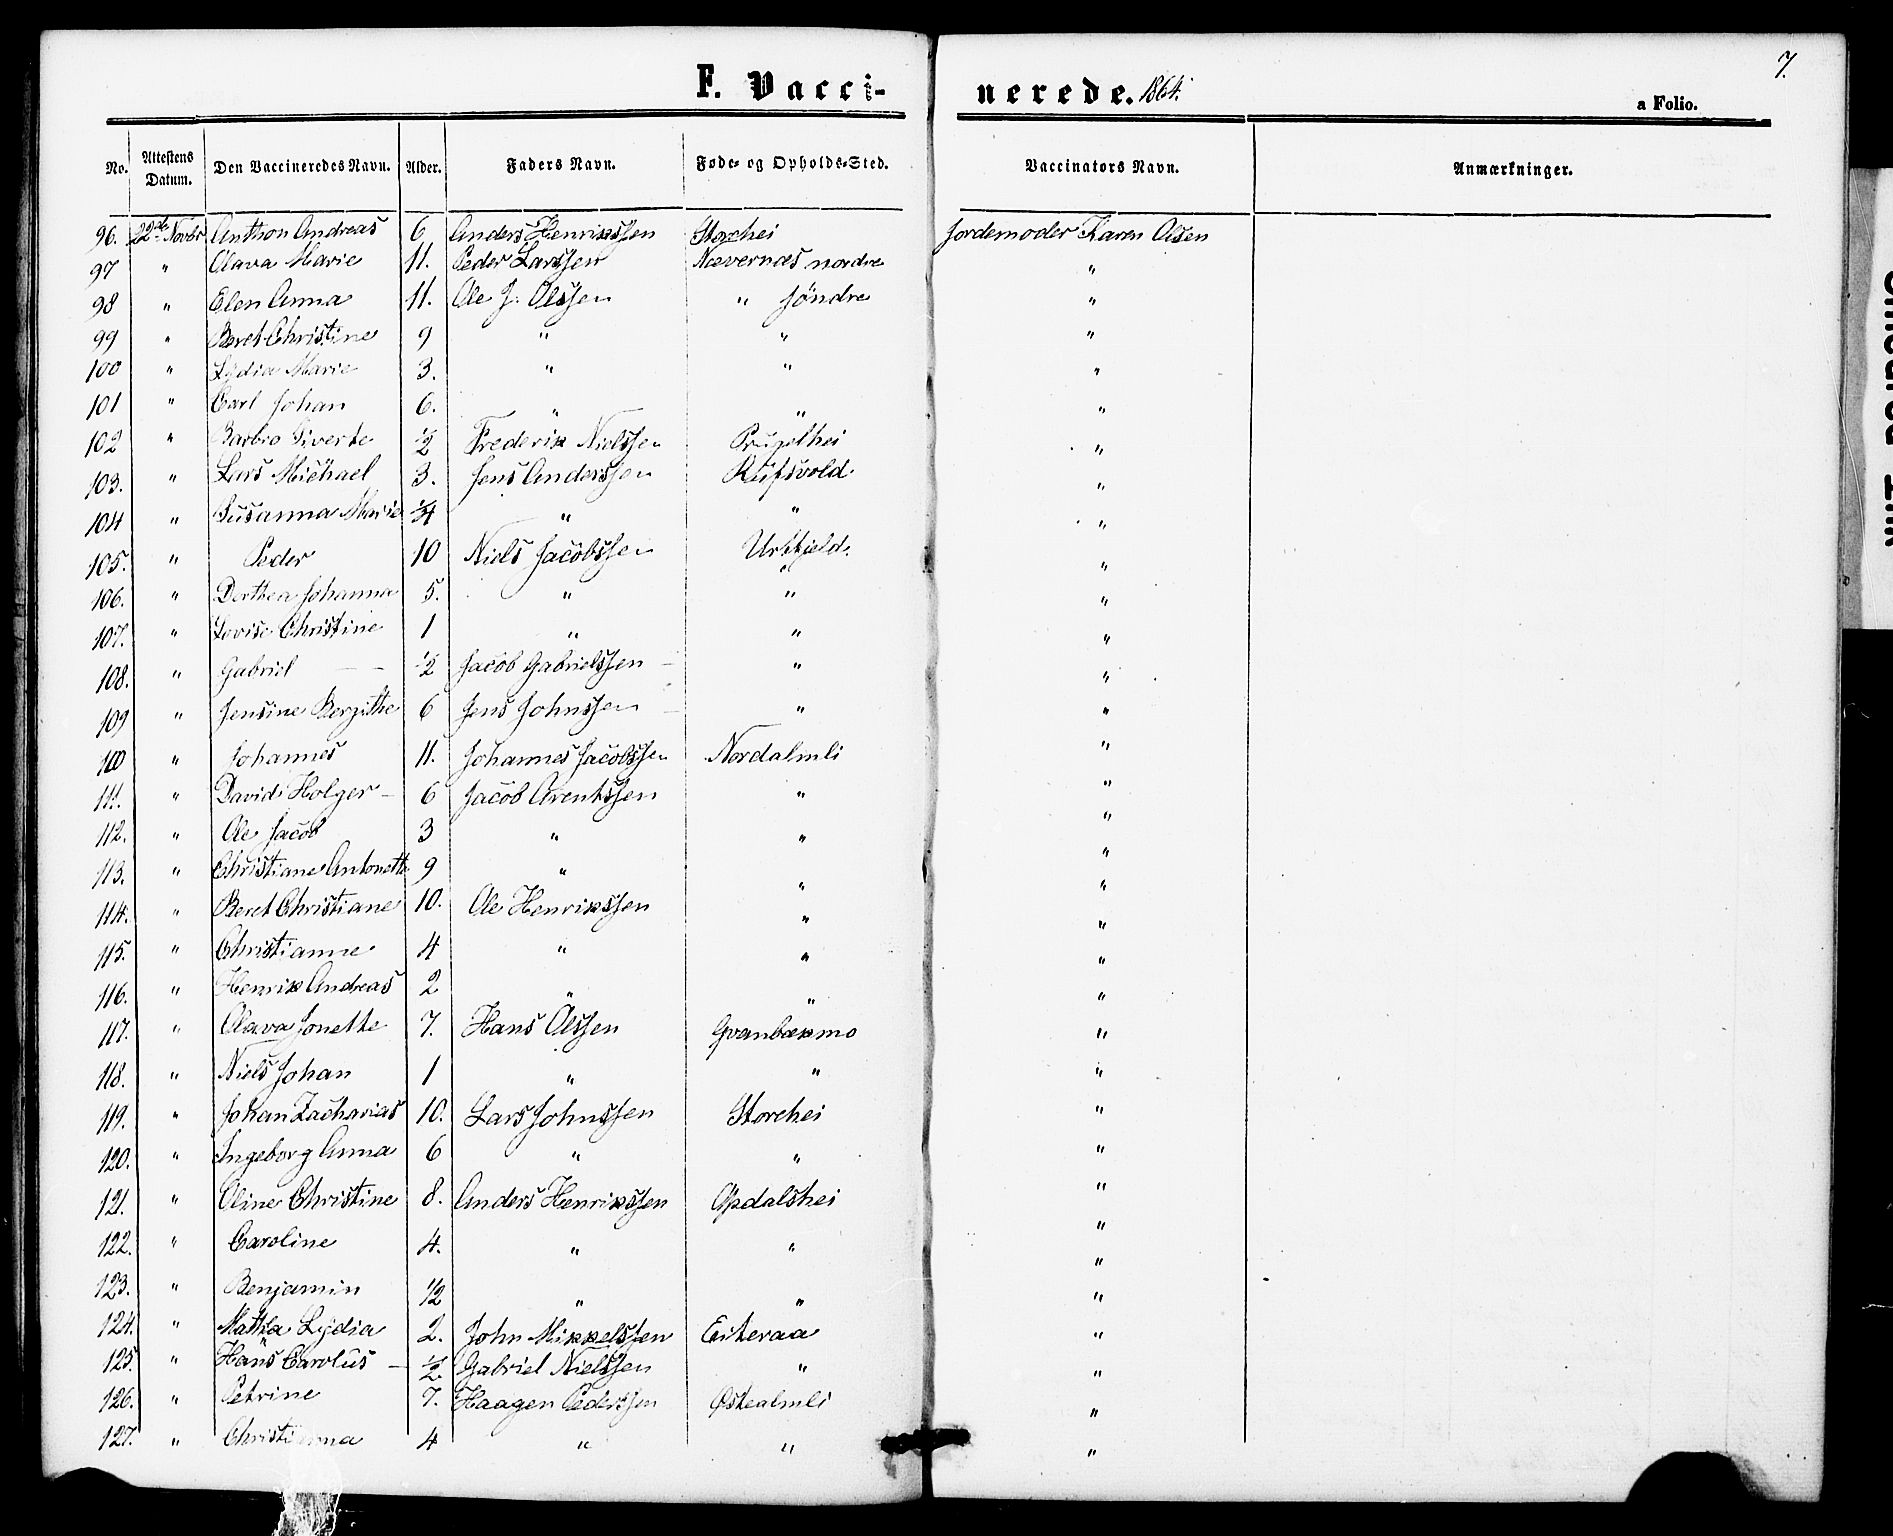 7.
F. Vaccinerede. 1864.
a Folio.
No. Attestens Datum. Den Vaccineredes Navn. Alder. Faders Navn. Føde- og Opholds-Sted. Vaccinators Navn. Anmærkninger.
96. 22de Novbr Anthon Andreas 6 Anders Henrikssen Storehei Jordemoder Karen Olsen
97 " Olava Marie 11. Peder Larssen Nævernæs nordre "
98 " Elen Anna 11. Ole J. Olssen " søndre "
99 " Beret Christine 9 " " "
100 " Lydia Marie 3. " " "
101 " Carl Johan 6. " " "
102 " Barbro Siverte 1/2 Frederik Nielssen "
103. " Lars Michael 3. Jens Anderssen "
104 " Susanna Marie 3/4 " " "
105. " Peder 10 Niels Jacobssen Urtfjeld. "
106. " Dorthea Johanna 5. " " "
107. " Lovise Christine 1 " " "
108. " Gabriel 1/2 Jacob Gabrielssen " "
109 " Jensine Bergithe 6 Jens Johnssen " "
100 " Johannes 11. Johannes Jacobssen Nordalmli "
111. " David Holger 6 Jacob Arentssen " "
112. " Ole Jacob 3 " " "
113. " Christiane Antonette 9 " " "
114. " Beret Christiane 10. Ole Henrikssen " "
115. " Christianne 4 " " "
116. " Henrik Andreas 2 " " "
117. " Olava Jonette 7. Hans Olssen Qvanbækmo "
118. " Niels Johan 1 " " "
119. " Johan Zacharias 10. Lars Johnssen Storehei "
120. " Ingeborg Anna 6 " " "
121. " Oline Christine 8. Anders Henrikssen Opdalshei "
122. " Caroline 4. " " "
123. " Benjamin 1/2 " " "
124. " Lydia 2. John Mikkelssen Eiteraa "
125. " Hans Carolus 1/2 Gabriel Nielssen " "
126. " Petrine 7. Haagen Pederssen Østealmli "
127. " 4 " " "